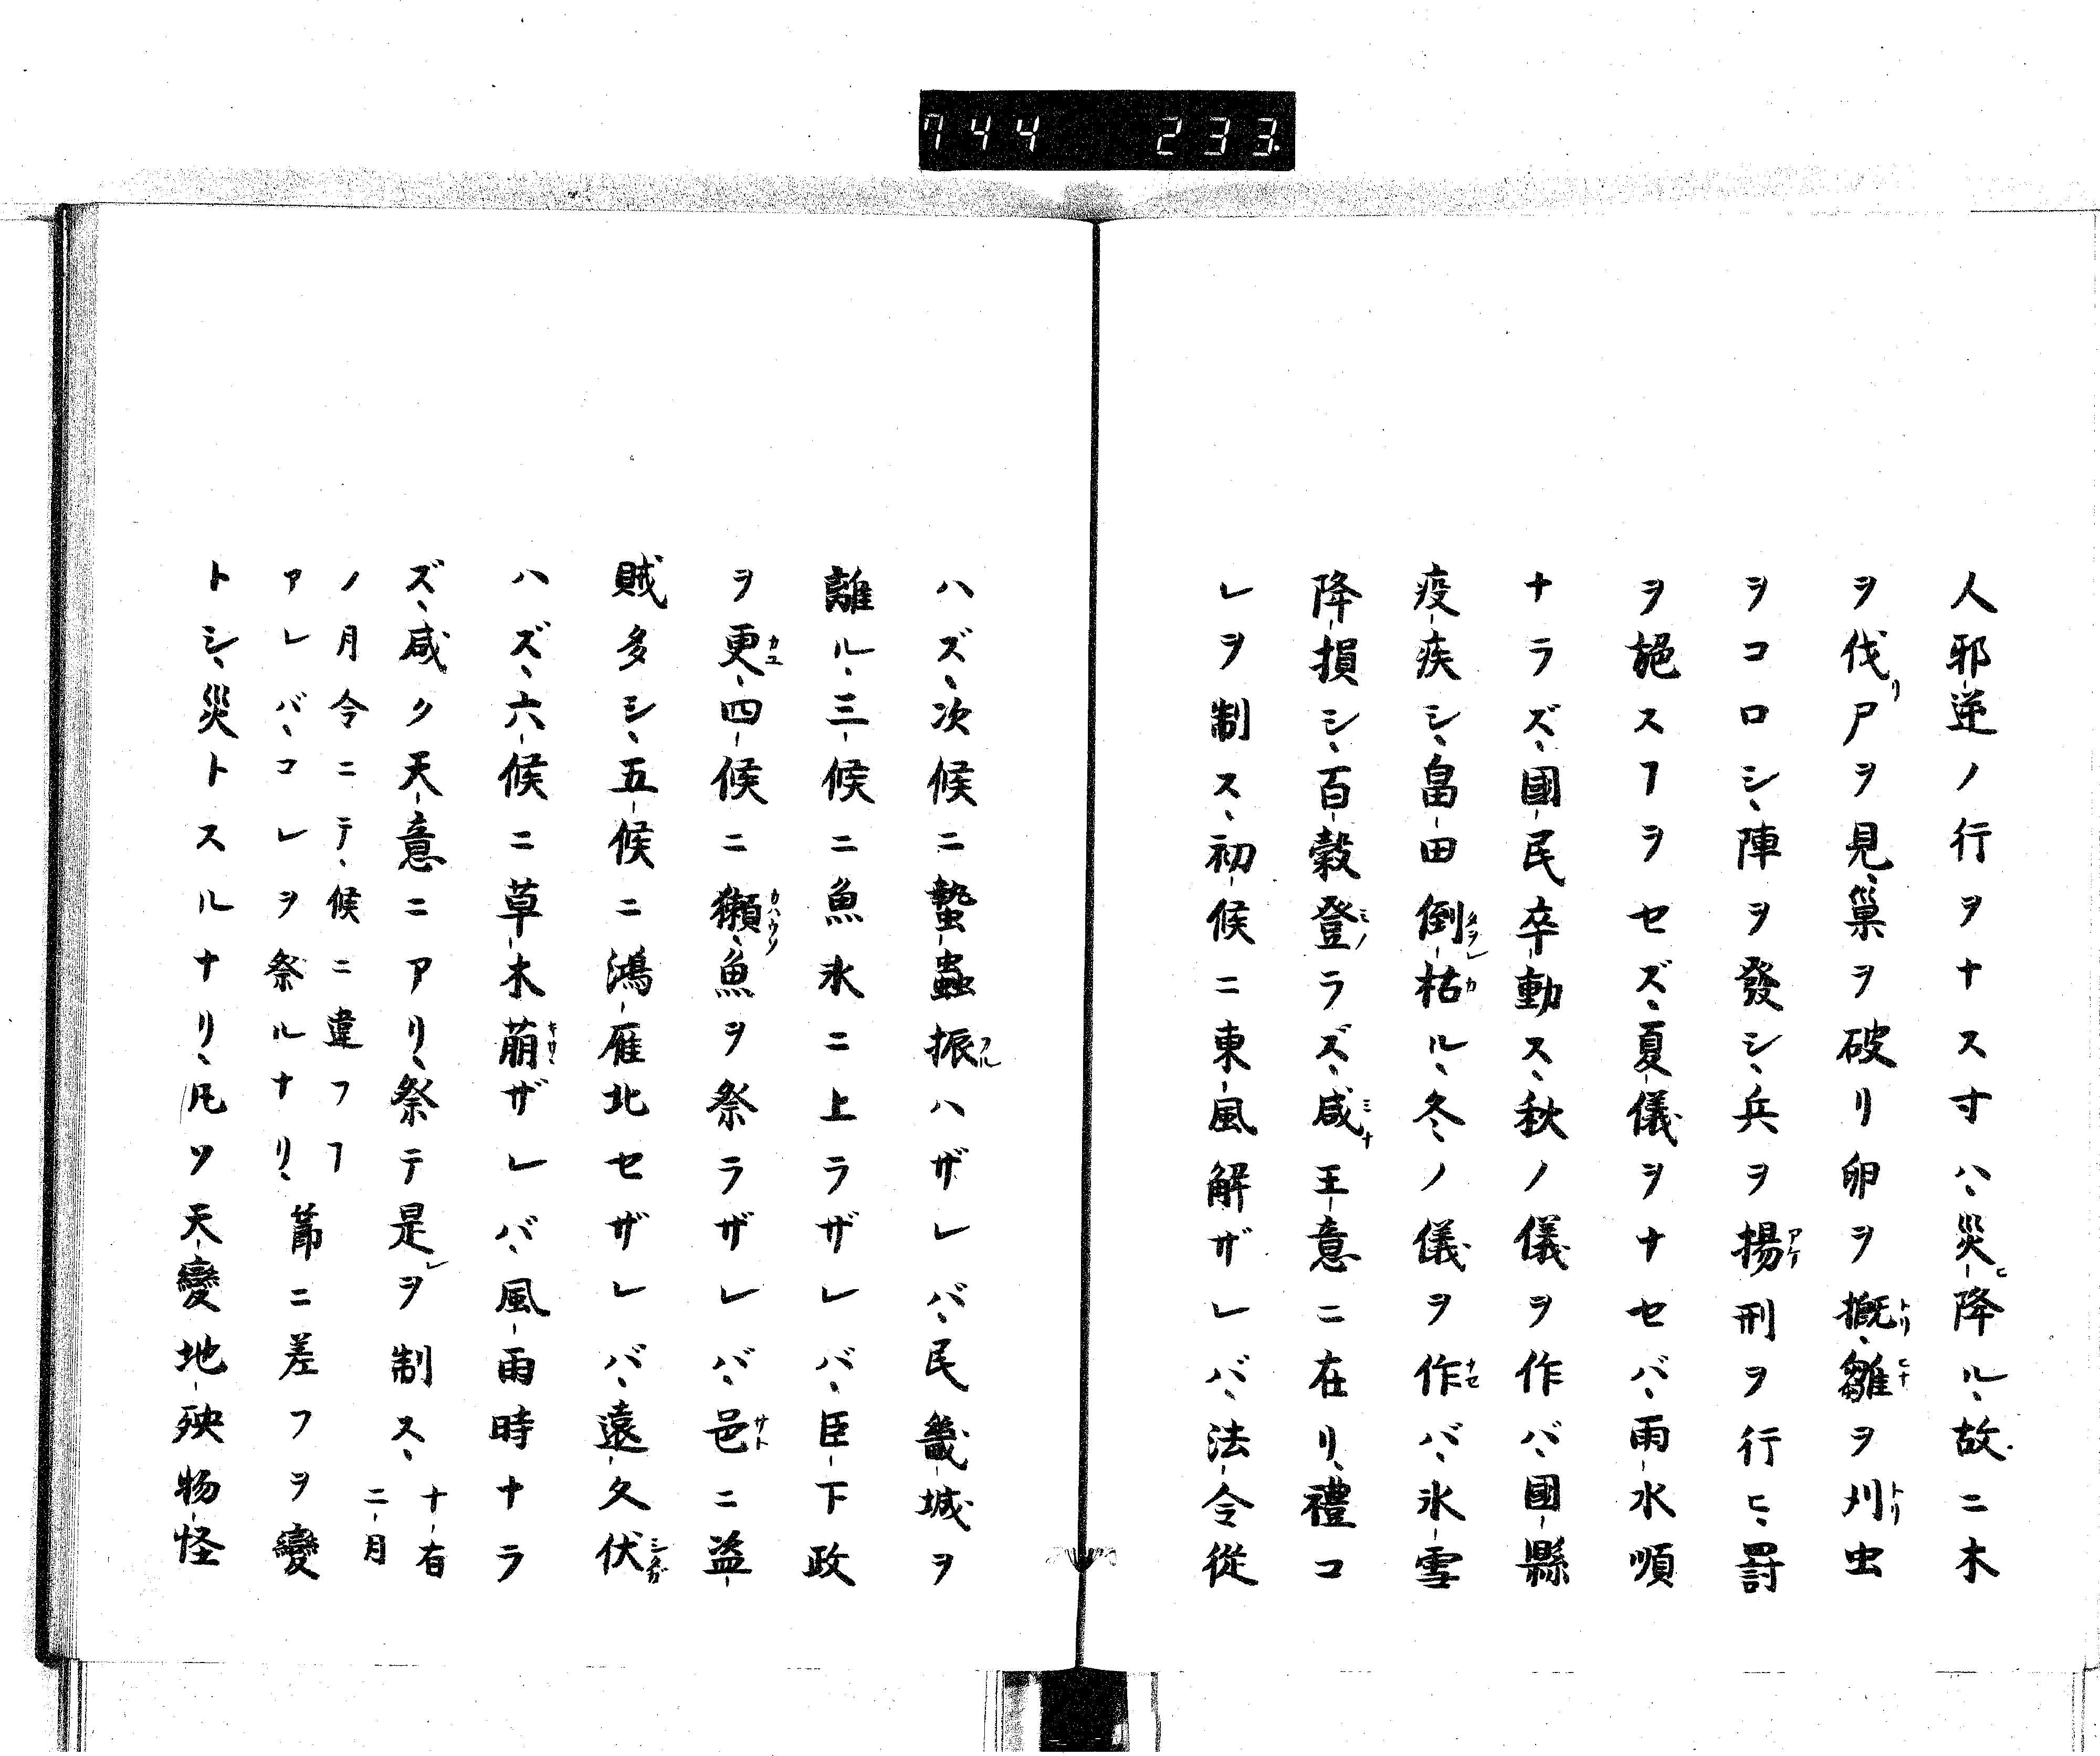 744 233
人邪逆ノ行ヲナス寸ハ、災降ル、故ニ木
ヲ伐リ尸ヲ見、巣ヲ破リ卵ヲ概、雛ヲ刈虫
ヲコロシ、陣ヲ發シ、兵ヲ揚刑ヲ行ヒ、罸
ヲ絶スヿヲセズ、夏儀ヲナセバ、雨水順
ナラズ、國民卒動ス、秋ノ儀ヲ作バ、國縣
疫疾シ、畠田倒枯ル、冬ノ儀ヲ作バ、氷雪
降損シ、百穀登ラズ、咸王意ニ在リ、禮コ
レヲ制ス、初候ニ東風解ザレバ、法令從
ハズ、次候ニ蟄蟲振ハザレバ、民畿城ヲ
離ル、三候ニ魚氷ニ上ラザレバ、臣下政
ヲ更、四候ニ獺、魚ヲ祭ラザレバ、邑ニ盗
賊多シ、五候ニ鴻雁北セザレバ、遠久伏
ハズ、六候ニ草木萠ザレバ、風雨時ナラ
ズ、咸ク天意ニアリ、祭テ是ヲ制ス、十有二月
ノ月令ニテ、候ニ違フヿアレバ、コレヲ祭ルナリ、節ニ差フヲ變
トシ、災トスルナリ、凡ソ天變地殃物怪